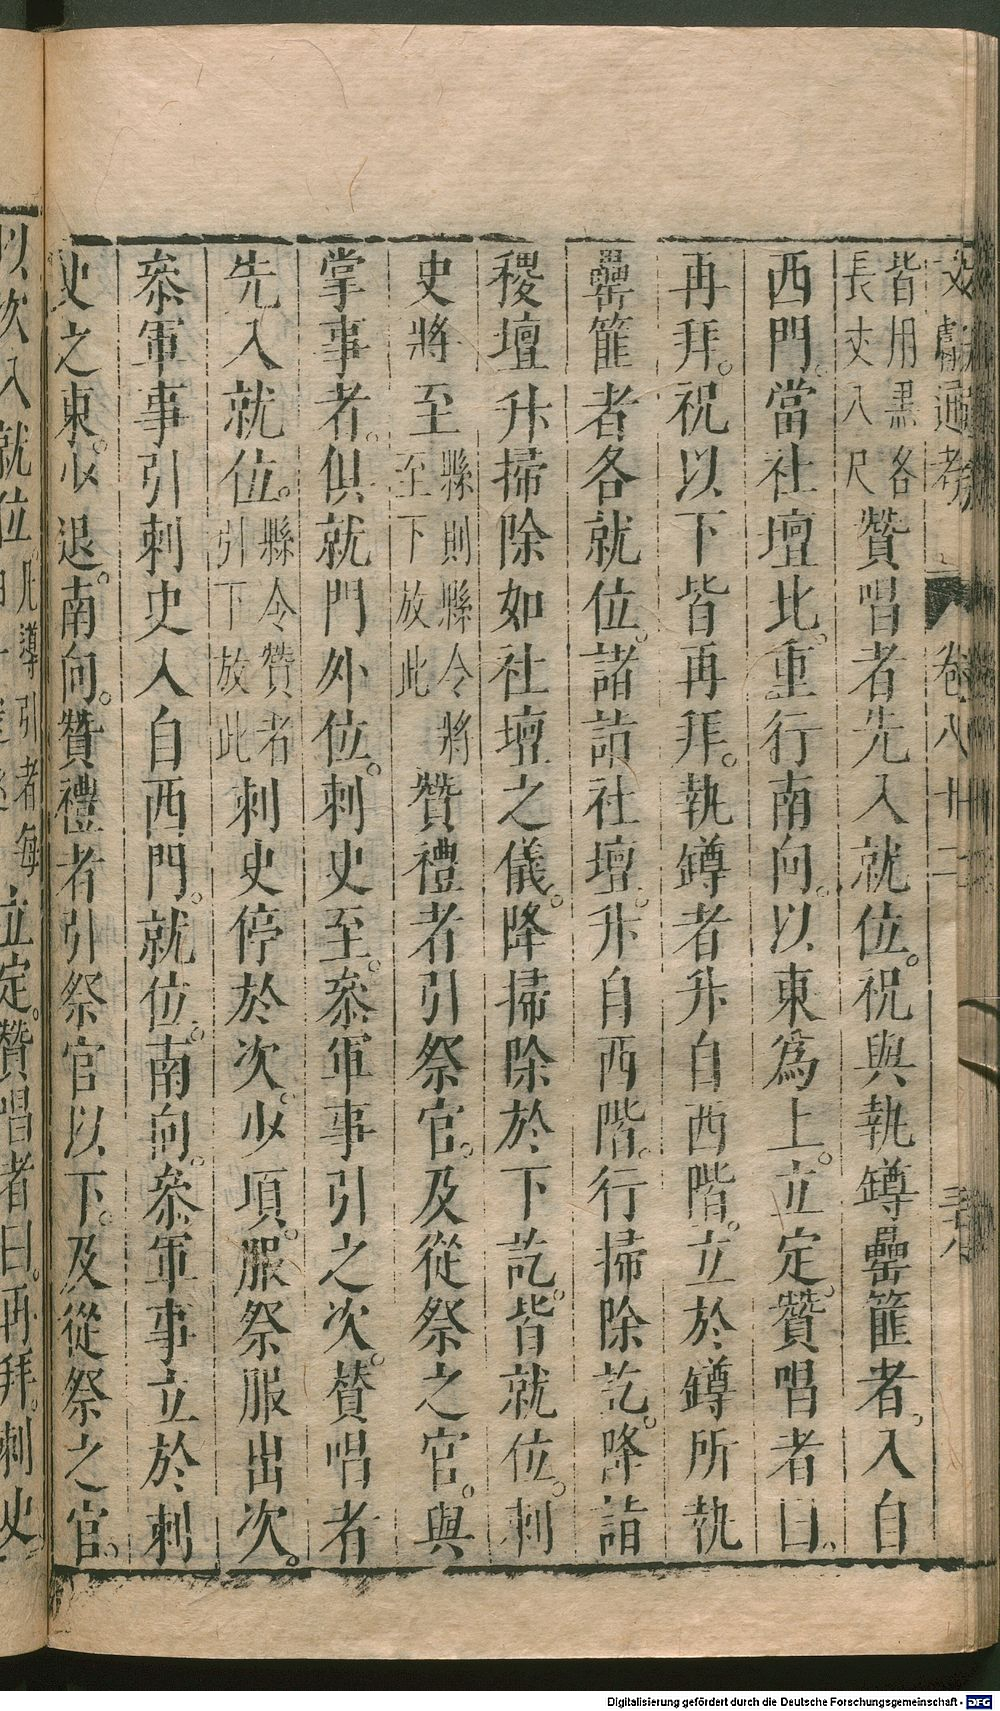 文獻通考 卷八十二 三十八
皆用黑各長丈八尺贊唱者先入就位。祝與執罇罍篚者。入自
西門。當社壇北。重行南向。以東為上。立定。贊唱者曰。
再拜。祝以下皆再拜。執罇者升自西階。立於罇所執
罍篚者各就位。諸詣社壇。升自西階。行掃除訖。降詣
稷壇升掃除如社壇之儀。降掃除於下訖。皆就位。刺
史將至縣則縣令將至下放此贊禮者引祭官。及從祭之官。與
掌事者。俱就門外位。刺史至。叅軍事引之次。賛唱者
先入就位。縣令贊者引下放此刺史停於次。少頃。服祭服出次。
叅軍事引刺史入自西門。就位。南向。叅軍事立於刺
史之東。少退。南向。贊禮者引祭官以下。及從祭之官。
以次入就位。凡導引者每立定。贊唱者曰。再拜。刺史
Digitalisierung gefördert durch die Deutsche Forschungsgemeinschaft - DFG